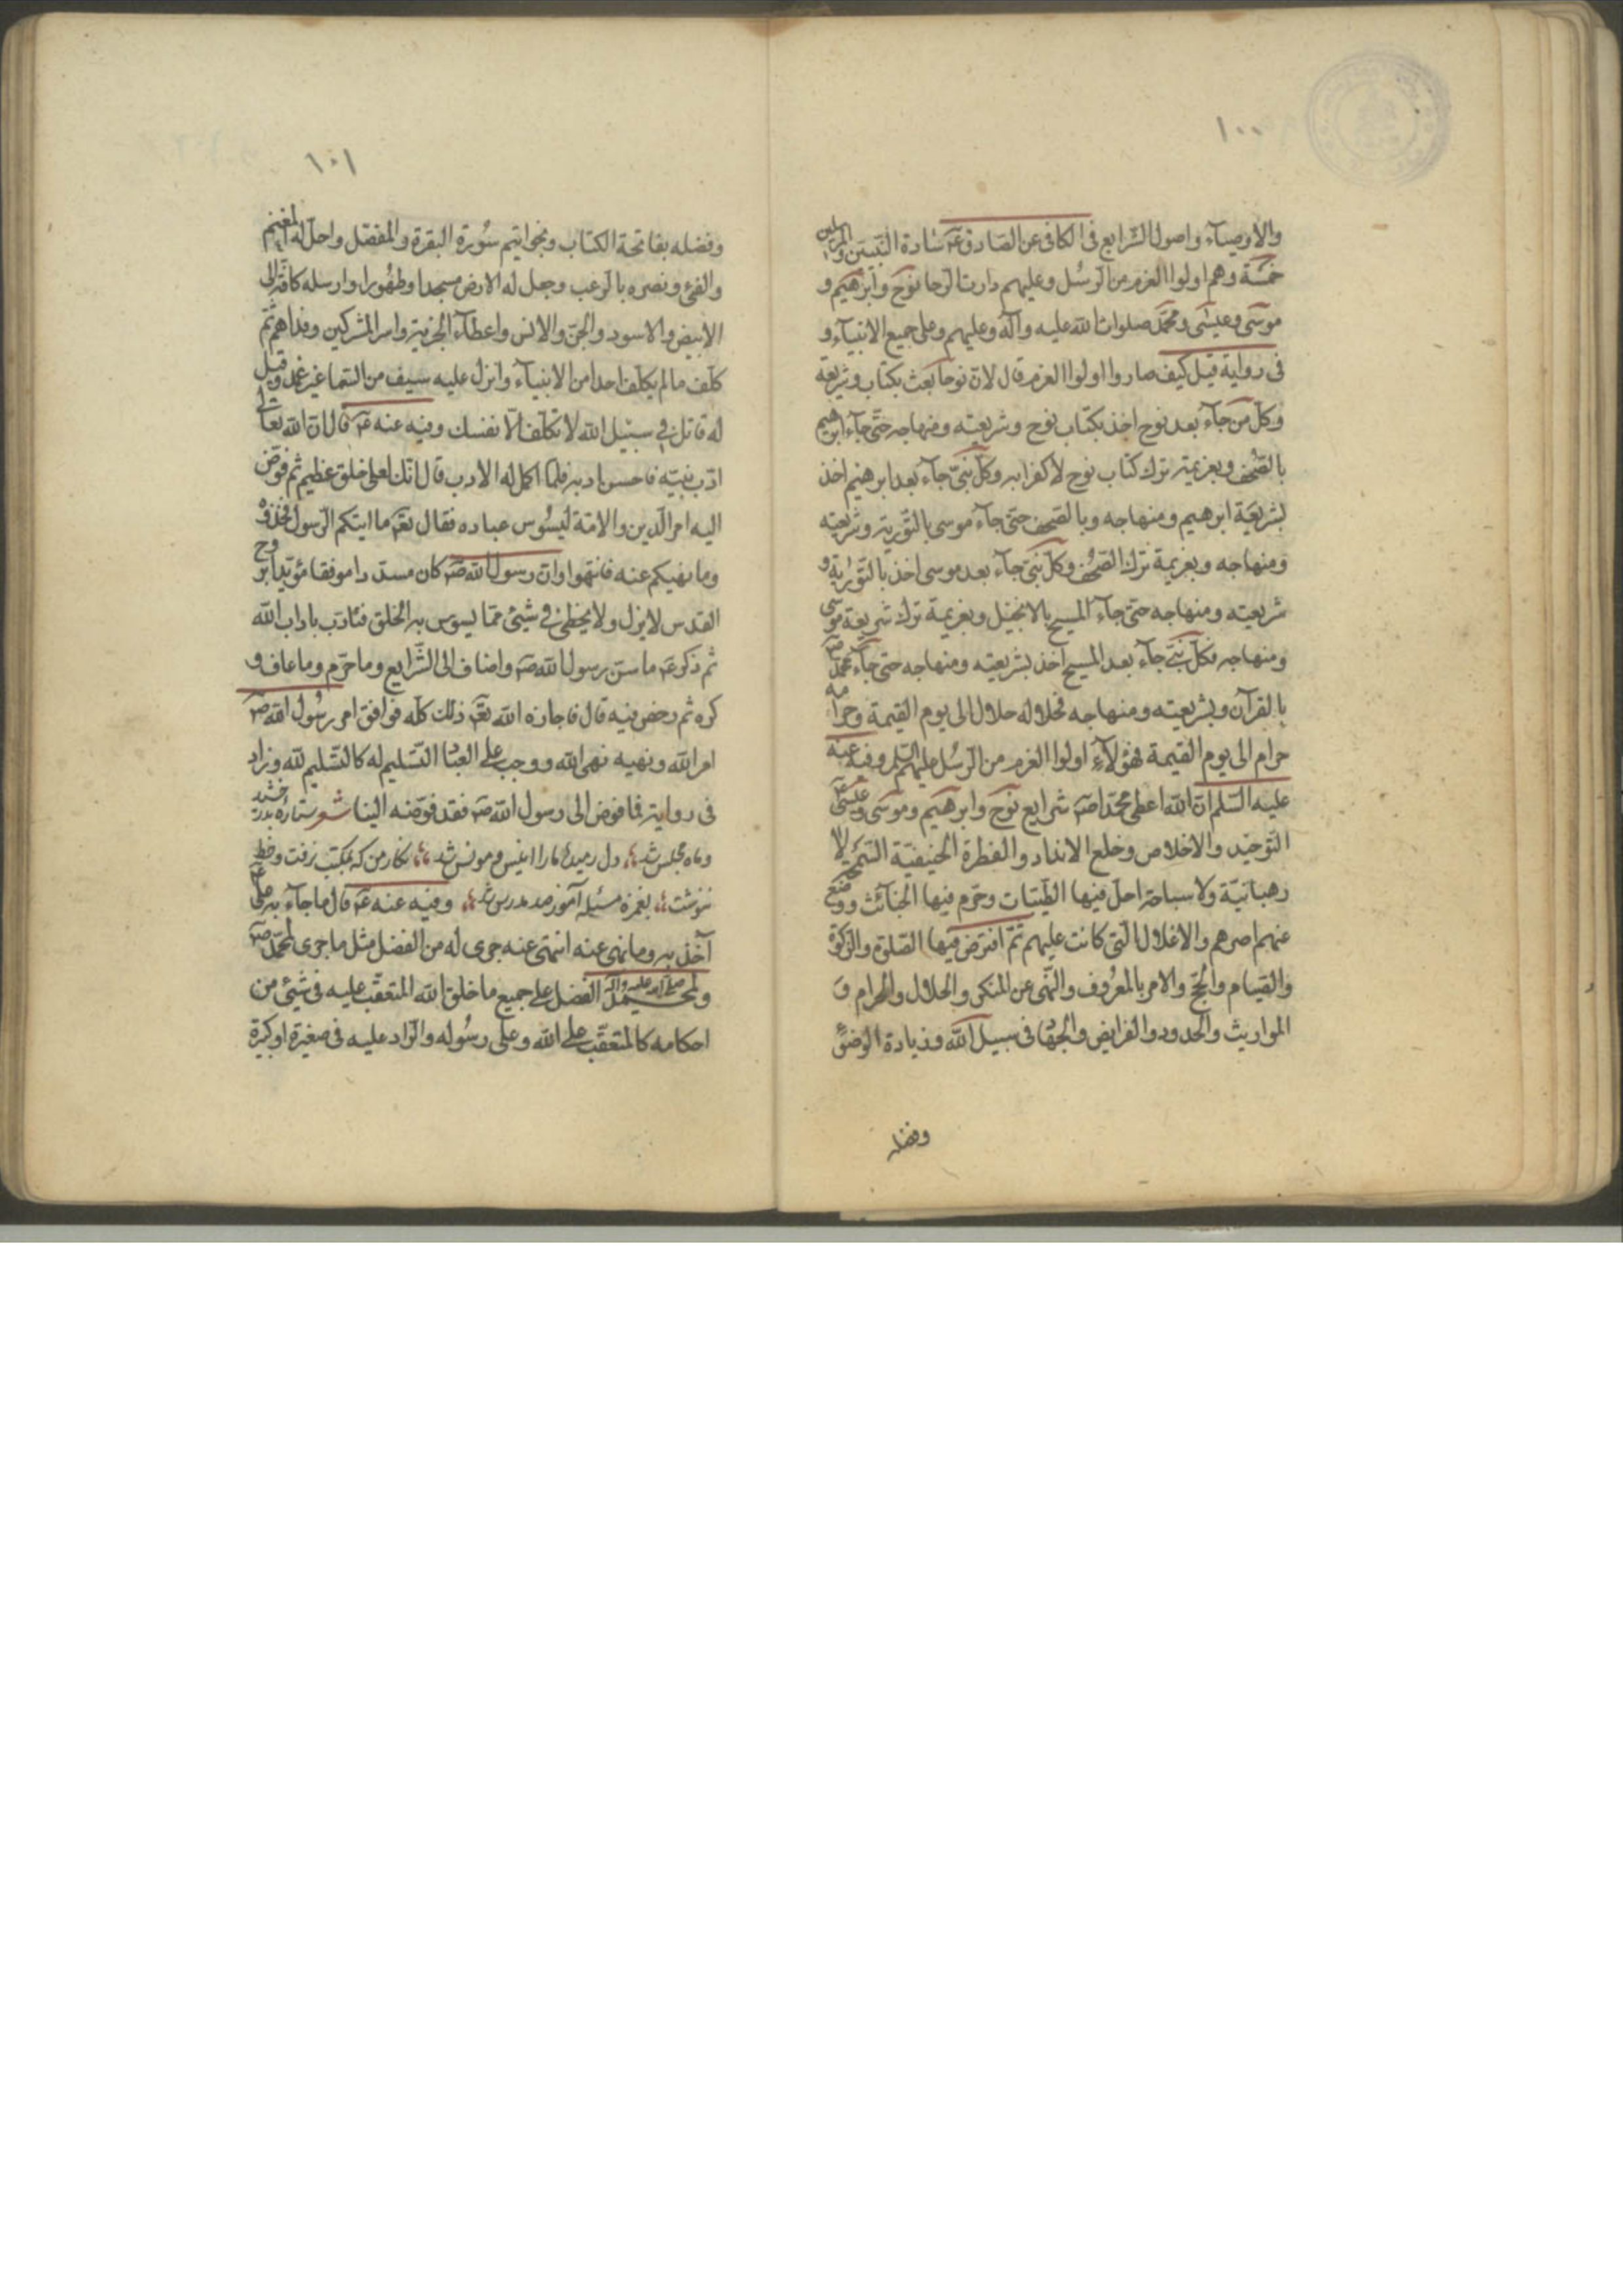 ١٠٠
والاوصياء واصول الشرايع فى الكافى عن الصادق عۤ سادة النبيين والمرسلين
خمسة وهم اولوا العزم من الرسل وعليهم دارت الرحا نوح وابرهيم و
موسى وعيسى ومحمد صلوات الله عليه وآله وعليهم وعلى جميع الانبياء و
فى رواية قيل كيف صاروا اولوا العزم قال لان نوحا بعث بكتاب وشريعة
وكل من جاء بعد نوح اخذ بكتاب نوح وشريعته ومنهاجه حتى جاء ابرهيم
بالصحف وبعزيمة ترك كتاب نوح لا كفرا به وكل نبى جاء بعد ابرهيم اخذ
بشريعة ابرهيم ومنهاجه وبالصحف حتى جاء موسى بالتورية وشريعته
ومنهاجه وبعزيمة ترك الصحف وكل نبى جاء بعد موسى اخذ بالتورية و
شريعته ومنهاجه حتى جاء المسيح بالانجيل وبعزيمة ترك شريعة موسى
ومنهاجه فكل نبى جاء بعد المسيح اخذ بشريعته ومنهاجه حتى جاء محمد صۤ
بالقرآن وبشريعته ومنهاجه فحلاله حلال الى يوم القيمة وحرامه
حرام الى يوم القيمة فهؤلاء اولوا العزم من الرسل عليهم السلم وفيه عنه
عليه السلم ان الله اعطى محمدا صۤ شرايع نوح وابرهيم وموسى وعيسى عۤ
التوحيد والاخلاص وخلع الانداد والفطرة الحنيفية السمحة لا
رهبانية ولا سياحة احل فيها الطيبات وحرم فيها الخبائث ووضع
عنهم اصرهم والاغلال التى كانت عليهم ثم افترض فيها الصلوة والزكوة
والصيام والحج والامر بالمعروف والنهى عن المنكر والحلال والحرام و
المواريث والحدود والفرايض والجهاد فى سبيل الله وزيادة الوضوء
وفضله
١٠١
وفضله بفاتحة الكتاب وبخواتيم سورة البقرة والمفصل واحل له المغنم
والفئ ونصره بالرعب وجعل له الارض مسجدا وطهورا وارسله كافة الى
الابيض والاسود والجن والانس واعطاه الجزية واسر المشركين وفداهم ثم
كلف ما لم يكلف احدا من الانبياء وانزل عليه سيف من السماء غير غمد وقيل
له قاتل فى سبيل الله لا تكلف الا نفسك وفيه عنه عۤ قال ان الله تعالى
ادب نبيه فاحسن ادبه فلما اكمل له الادب قال انك لعلى خلق عظيم ثم فوض
اليه امر الدين والامة ليسوس عباده فقال تعۤ ما اتيكم الرسول فخذوه
وما نهيكم عنه فانتهوا وان رسول الله صۤ كان مسددا موفقا مؤيدا بروح
القدس لا يزل ولا يخطئ فى شيئ مما يسوس به الخلق فتادب باداب الله
ثم ذكر عۤ ما سن رسول الله صۤ واضاف الى الشرايع وما حرم وما عاف و
كره ثم رخص فيه قال فاجازه الله تعۤ ذلك كله فوافق امر رسول الله صۤ
امر الله ونهيه نهى الله ووجب على العباد التسليم له كالتسليم لله وزاد
فى رواية فما فوض الى رسول الله صۤ فقد فوضه الينا شعر ستاره بدرخشيد
وماه مجلس شد دل رميده ما را انيس و مونس شد نكار من كه بمكتب نرفت وخط
ننوشت بغمزه مسئله آموز صد مدرس شد وفيه عنه عۤ قال ما جاء به على عۤ
آخذ به وما نهى عنه انتهى عنه جرى له من الفضل مثل ما جرى لمحمد صۤ
ولمحمد صلى الله عليه وآله الفضل على جميع ما خلق الله المتعقب عليه فى شيئ من
احكامه كالمتعقب على الله وعلى رسوله والراد عليه فى صغيرة او كبيرة